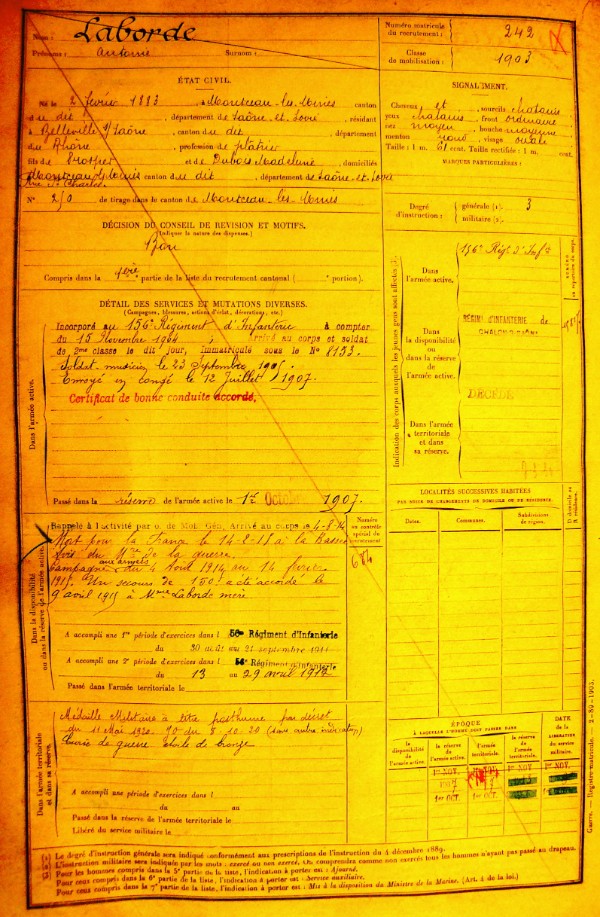 Nom : Laborde
Prénoms : Antoine Surnom :
Numéro matricule du recrutement : 242
Classe de mobilisation : 1903
ÉTAT CIVIL.
Né le 2 février 1883, à Montceau-les-Mines canton
du dit, département de Saône-et-Loire, résidant
à Belleville s/Saône canton du dit, département
du Rhône, profession de plâtrier
fils de et de Dubois Madeleine, domiciliés
Montceau-les-Mines canton du dit, département de Saône-et-Loire
Rue St Charles
N° 250 de tirage dans le canton de Montceau-les-Mines
SIGNALEMENT.
Cheveux et sourcils châtains
yeux châtains front ordinaire
nez moyen bouche moyenne
menton rond visage ovale
Taille : 1 m. 61 cent. Taille rectifiée : 1 m. cent.
MARQUES PARTICULIÈRES :
Degré d'instruction : générale (1). 3
militaire (2).
DÉCISION DU CONSEIL DE REVISION ET MOTIFS.
(Indiquer la nature des dispenses.)
Bon
Compris dans la 1ère partie de la liste du recrutement cantonal ( portion).
DÉTAIL DES SERVICES ET MUTATIONS DIVERSES.
(Campagnes, blessures, actions d'éclat, décorations, etc.)
Dans l'armée active.
Incorporé au 156e Régiment d'Infanterie à compter
du 15 Novembre 1904, arrivé au corps et soldat
de 2me classe le dit jour, immatriculé sous le N° 8133.
Soldat musicien le 23 Septembre 1905
Envoyé en congé le 12 juillet 1907.
Certificat de bonne conduite accordé.
Passé dans la réserve de l'armée active le 1er Octobre 1907.
Indication des corps auxquels les jeunes gens sont affectés
Dans l'armée active.
156e Régt d'Infie
Dans la disponibilité ou dans la réserve de l'armée active.
RÉGIMt D'INFANTERIE de
CHALON-S-SAÔNE
DÉCÉDÉ
Dans l'armée territoriale et dans sa réserve.
LOCALITÉS SUCCESSIVES HABITÉES
PAR SUITE DE CHANGEMENTS DE DOMICILE OU DE RÉSIDENCE.
Dates.
Communes.
Subdivisions de région.
D domicile ou R résidence.
Dans la disponibilité ou dans la réserve de l'armée active.
Rappelé à l'activité par o. de Mob. Gén. Arrivé au corps le 4-8-14
Mort pour la France le 14-2-15 à la Bassée
Avis du Mre de la guerre.
aux armées
Campagne du 4 Août 1914 au 14 février
1915. Un secours de 150f a été accordé le
9 avril 1915 à Mme Laborde mère
Numéro au contrôle spécial du recrutement
A accompli une 1re période d'exercices dans l 56me Régiment d'Infanterie
du 30 août au 21 septembre 1911
A accompli une 2e période d'exercices dans l 56e Régiment d'Infanterie
du 13 au 29 avril
Passé dans l'armée territoriale le
Dans l'armée territoriale et dans sa réserve.
Médaille Militaire à titre posthume par décret
du 11 Mai 1920. JO du 8.10.20 (sans autre indication)
Croix de guerre étoile de bronze
A accompli une période d'exercices dans l
du au
Passé dans la réserve de l'armée territoriale le
Libéré du service militaire le
ÉPOQUE
À LAQUELLE L'HOMME DOIT PASSER DANS
la disponibilité de l'armée active.
la réserve de l'armée active.
l'armée territoriale.
la réserve de l'armée territoriale.
DATE de la LIBÉRATION du service militaire.
1er NOV.
1907
1er OCT.
1er NOV.
1er NOV.
Guerre. — Registre matricule. — 2-89-1903.
(1) Le degré d'instruction générale sera indiqué conformément aux prescriptions de l'instruction du 4 décembre 1889.
(2) L'instruction militaire sera indiquée par les mots : exercé ou non exercé. On comprendra comme non exercés tous les hommes n'ayant pas passé au drapeau.
(3) Pour les hommes compris dans la 5e partie de la liste, l'indication à porter est : Ajourné.
Pour ceux compris dans la 6e partie de la liste, l'indication à porter est : Service auxiliaire.
Pour ceux compris dans la 7e partie de la liste, l'indication à porter est : Mis à la disposition du Ministre de la Marine. (Art. 4 de la loi.)